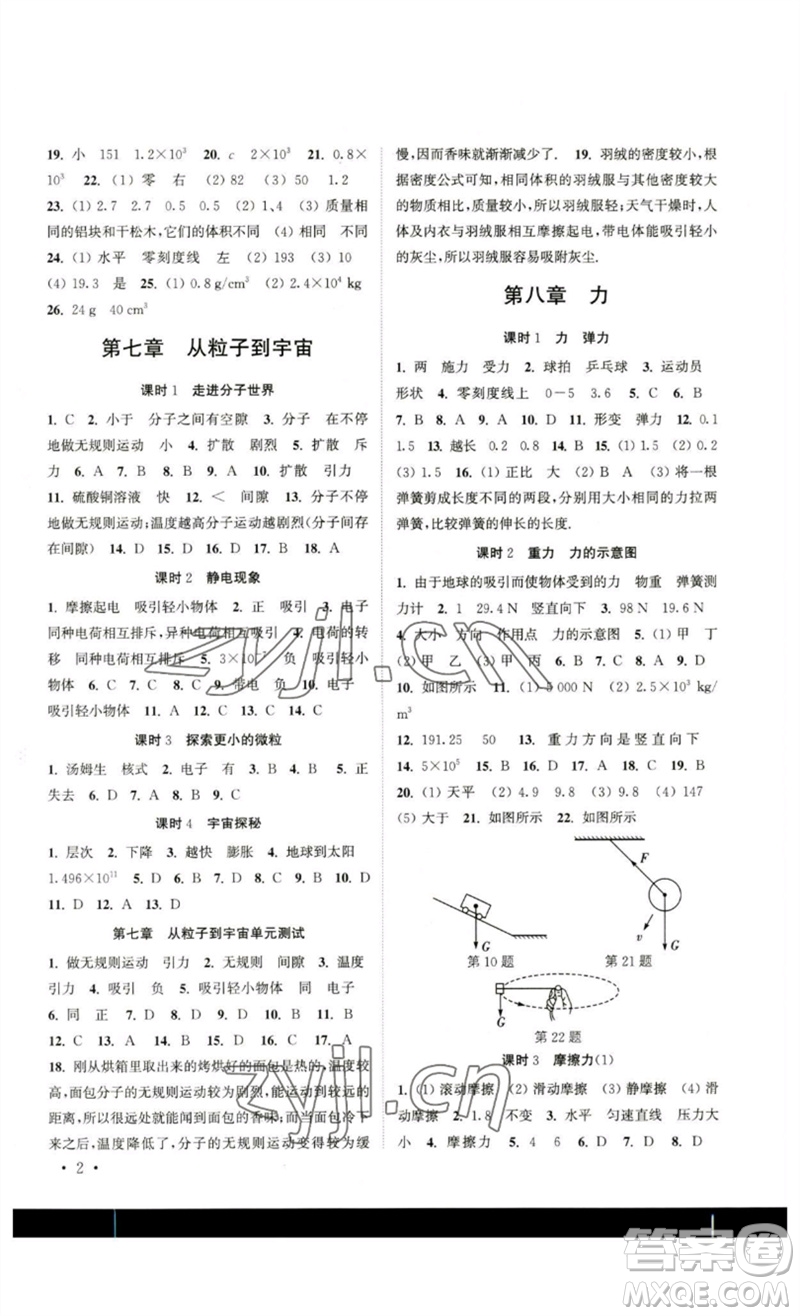 19. 小 151 1.2×10³ 20. c 2×10³ 21. 0.8×
10³ 22. (1) 零 右 (2) 82 (3) 50 1.2
23. (1) 2.7 2.7 0.5 0.5 (2) 1、4 (3) 质量相
同的铝块和干松木,它们的体积不同 (4) 相同 不同
24. (1) 水平 零刻度线 左 (2) 193 (3) 10
(4) 19.3 是 25. (1) 0.8 g/cm³ (2) 2.4×10⁴ kg
26. 24 g 40 cm³
第七章 从粒子到宇宙
课时1 走进分子世界
1. C 2. 小于 分子之间有空隙 3. 分子 在不停
地做无规则运动 小 4. 扩散 剧烈 5. 扩散 斥
力 6. A 7. B 8. B 9. C 10. 扩散 引力
11. 硫酸铜溶液 快 12. < 间隙 13. 分子不停地
做无规则运动;温度越高分子运动越剧烈(分子间存
在间隙) 14. D 15. D 16. D 17. B 18. A
课时2 静电现象
1. 摩擦起电 吸引轻小物体 2. 正 吸引 3. 电子
同种电荷相互排斥,异种电荷相互吸引 4. 电子的转
移 同种电荷相互排斥 5. 3×10⁻⁷ 负 吸引轻小
物体 6. C 7. C 8. C 9. 带电 负 10. 电子
吸引轻小物体 11. A 12. D 13. C 14. D
课时3 探索更小的微粒
1. 汤姆生 核式 2. 电子 有 3. B 4. D 5. 正
失去 6. D 7. A 8. B 9. C
课时4 宇宙探秘
1. 层次 2. 下降 3. 越快 膨胀 4. 地球到太阳
1.496×10¹¹ 5. D 6. A 7. B 8. A 9. B 10. D
11. D 12. A 13. D
第七章 从粒子到宇宙单元测试
1. 做无规则运动 引力 2. 无规则 间隙 3. 温度
引力 4. 吸引 负 5. 吸引轻小物体 同 电子
6. 同 正 7. D 8. A 9. B 10. D 11. B
12. C 13. C 14. D 15. C 16. D 17. A
18. 刚从烘箱里取出来的烤烘好的面包的温度较
高,面包分子的无规则运动较剧烈,能运动到较远的
距离,所以能闻到面包的香味;而当面包冷却下来
后,温度降低了,分子的无规则运动变得较为缓
• 2 •
慢,因而香味就渐渐减少了. 19. 羽绒的密度较小,
根据密度公式可知,相同体积的羽绒与其他密度较大
的物质相比,质量较小,所以羽绒服轻;天气干燥时,人
体及内衣与羽绒服相互摩擦起电,带电体能吸引轻小
的灰尘,所以羽绒服容易吸附灰尘.
第八章 力
课时1 力 弹力
1. 两 施力 受力 2. 球拍 乒乓球 3. 运动员
形状 4. 零刻度线上 0—5 3.6 5. C 6. B
7. B 8. A 9. A 10. D 11. 形变 弹力 12. 0.1
1.5 13. 越长 0.2 0.8 14. D 15. (1) B (2) 正
(3) 1.5 16. (1) 正比 大 (2) B A (3) 将一根
弹簧剪成长度不同的两段,分别用大小相同的力拉两
弹簧,比较弹簧的伸长的长度.
课时2 重力 力的示意图
1. 由于地球的吸引而使物体受到的力 物重 弹簧测
力计 2. 1 29.4 N 竖直向下 3. 98 N 19.6 N
4. 大小 方向 作用点 力的示意图 5. (1) 甲 丁
(2) 甲 乙 (3) 甲 丙 6. B 7. C 8. B 9. D
10. 如图所示 11. (1) 5 000 N (2) 2.5×10³ kg/
m³
12. 191.25 50 13. 重力方向是竖直向下
14. 5×10⁵ 15. D 16. C 17. B 18. C 19. B
20. (1) 天平 (2) 9.8 9.8 (3) 9.8 (4) 147
(5) 大于 21. 如图所示 22. 如图所示
F
v
G
G
第10题
第21题
G
第22题
课时3 摩擦力(1)
1. (1) 滚动摩擦 (2) 滑动摩擦 (3) 静摩擦 (4) 滑
动摩擦 2. 1.8 不变 3. 水平 匀速直线 压力大
小 4. 摩擦力 5. 4 6 6. D 7. D 8. D
zyjl.cn
zyjl.cn
答案圈
MXQE.COM